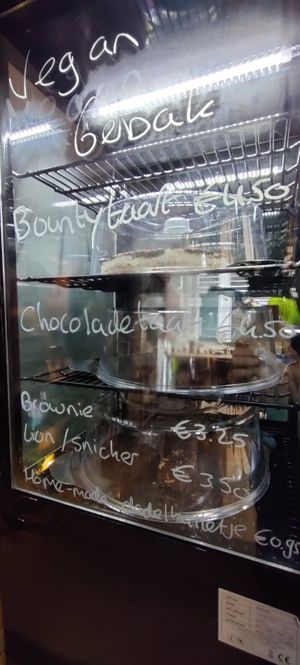 Vegan
Gebak
Bountytaart €4.50
Chocoladetaart €4.50
Brownie €3.25
Lion/snicher €3.50
Home-made dadelballetje €0.95